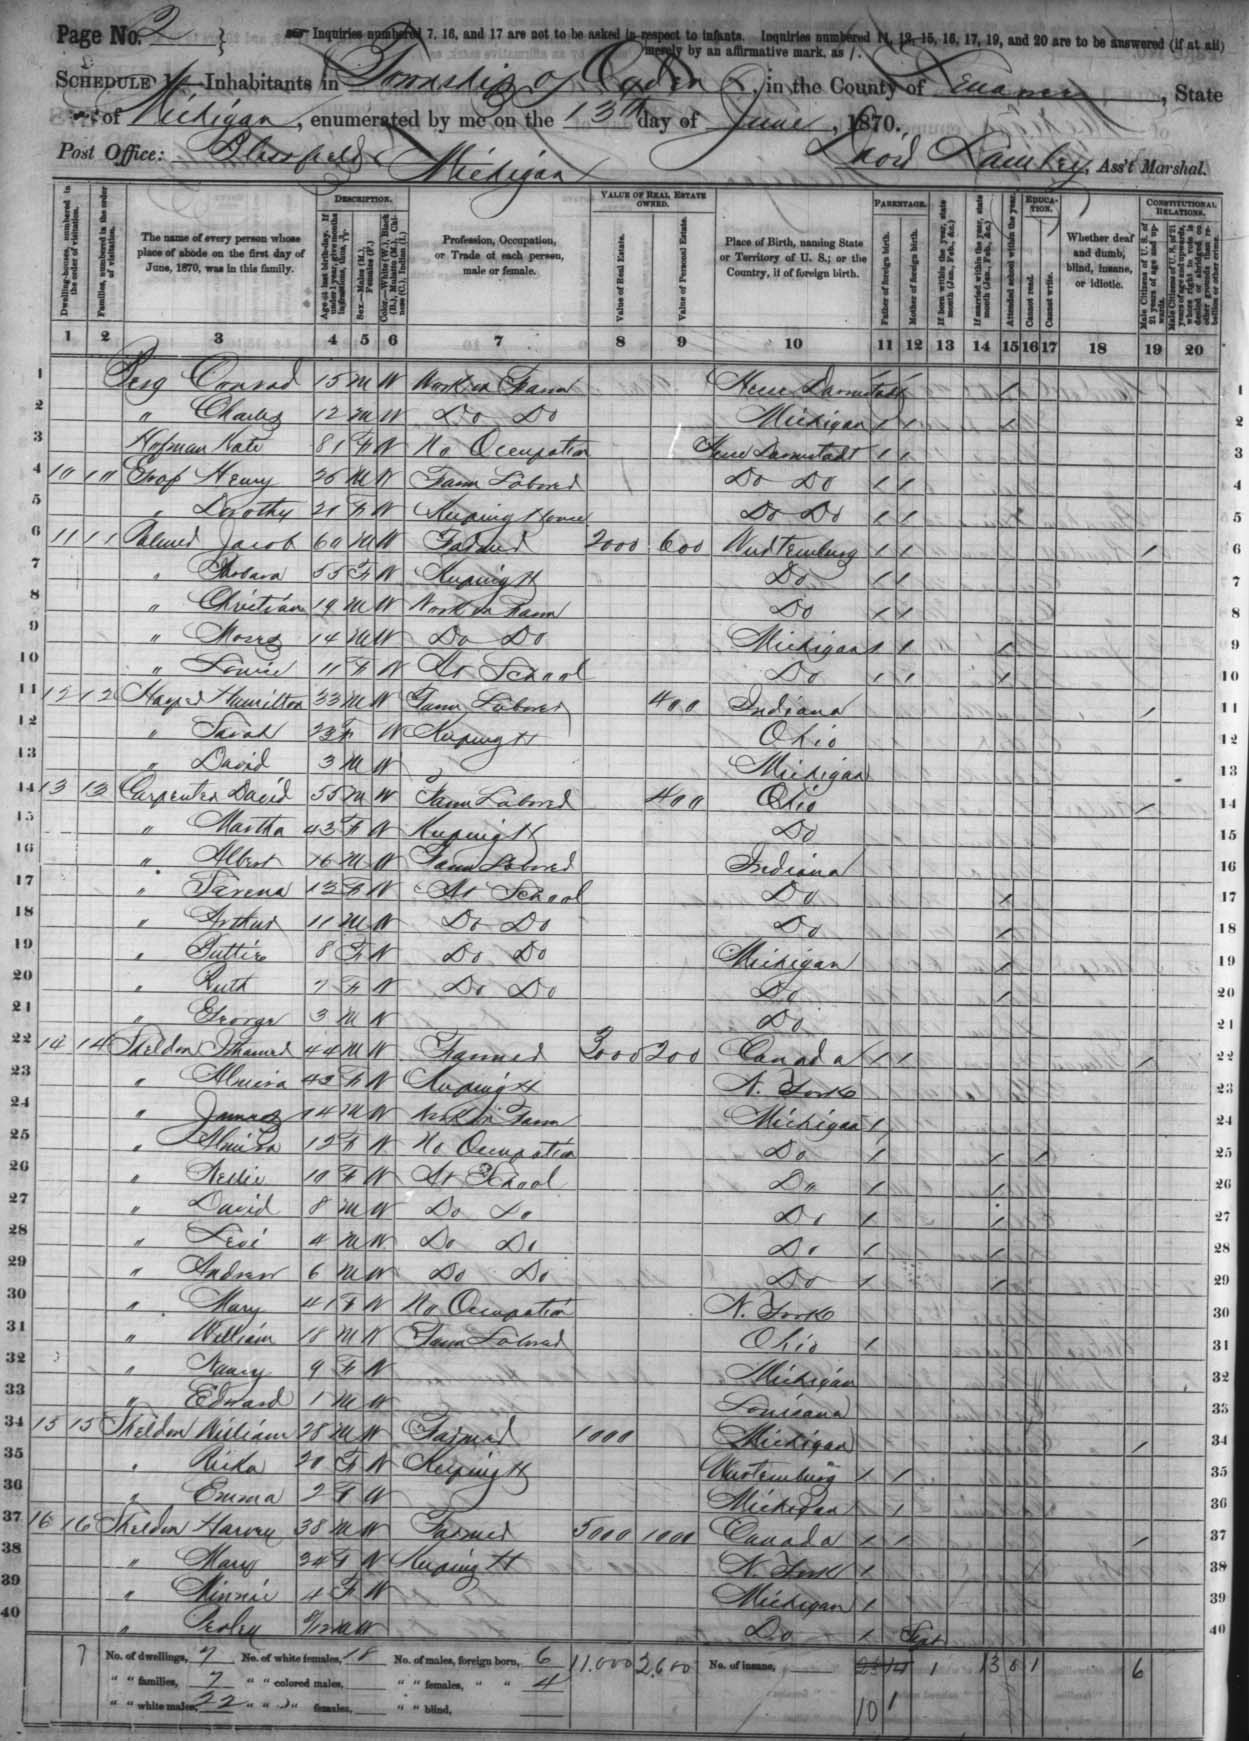 Page No. 2 } Inquiries numbered 7, 16, and 17 are not to be asked in respect to infants. Inquiries numbered 11, 12, 15, 16, 17, 19, and 20 are to be answered (if at all)
merely by an affirmative mark, as /.
SCHEDULE 1.—Inhabitants in Township of Ogden, in the County of Lenawee, State
of Michigan, enumerated by me on the 13th day of June, 1870.
Post Office: Blissfield Michigan David Ass't Marshal.
DESCRIPTION. VALUE OF REAL ESTATE OWNED. PARENTAGE. EDUCATION. CONSTITUTIONAL RELATIONS.
Dwelling-houses, numbered in the order of visitation. Families, numbered in the order of visitation. The name of every person whose place of abode on the first day of June, 1870, was in this family. Age at last birth-day. If under 1 year, give months in fractions, thus, Sex.—Males (M.), Females (F.) Color.—White (W.), Black (B.), Mulatto (M.), Chinese (C.), Indian (I.) Profession, Occupation, or Trade of each person, male or female. Value of Real Estate. Value of Personal Estate. Place of Birth, naming State or Territory of U. S.; or the Country, if of foreign birth. Father of foreign birth. Mother of foreign birth. If born within the year, state month (Jan., Feb., &c.) If married within the year, state month (Jan., Feb., &c.) Attended school within the year. Cannot read. Cannot write. Whether deaf and dumb, blind, insane, or idiotic. Male Citizens of U. S. of 21 years of age and upwards.
1 2 3 4 5 6 7 8 9 10 11 12 13 14 15 16 17 18 19 20
1 Conrad 15 M W Work on Farm Hesse Darmstadt / / / 1
2 " Charles 12 M W Do Do Michigan / / / 2
3 Hofman Kate 81 F W No Occupation Hesse Darmstadt / / 3
4 10 10 Henry 26 M W Farm Laborer Do Do / / 4
5 " Dorothy 21 F W Keeping House Do Do / / 5
6 11 11 Jacob 60 M W Farmer 2000 600 Wurtemburg / / / 6
7 " Barbara 55 F W Keeping H Do / / 7
8 " Christian 19 M W Work on Farm Do / / 8
9 " Moses 14 M W Do Do Michigan / / / 9
10 " Louise 11 F W At School Do / / / 10
11 12 12 Harper Hamilton 33 M W Farm Laborer 400 Indiana / 11
12 " Sarah 23 F W Keeping H Ohio 12
13 " David 3 M W Michigan 13
14 13 13 Carpenter David 55 M W Farm Laborer 400 Ohio / 14
15 " Martha 43 F W Keeping H Do 15
16 " Albert 16 M W Farm Laborer Indiana 16
17 " 13 F W At School Do / 17
18 " Arthur 11 M W Do Do Do / 18
19 " 8 F W Do Do Michigan / 19
20 " Ruth 7 F W Do Do Do / 20
21 " George 3 M W Do 21
22 14 14 Sheldon 44 M W Farmer 3000 200 Canada / / / 22
23 " Almira 42 F W Keeping H N. York 23
24 " James 14 M W Work on Farm Michigan / 24
25 " Almira 12 F W No Occupation Do / / / 25
26 " Nellie 10 F W At School Do / / 26
27 " David 8 M W Do Do Do / / 27
28 " Levi 4 M W Do Do Do / / 28
29 " Andrew 6 M W Do Do Do / / 29
30 " Mary 41 F W No Occupation N. York 30
31 " William 18 M W Farm Laborer Ohio / 31
32 " Nancy 9 F W Michigan 32
33 " Edward 1 M W Louisana 33
34 15 15 Sheldon William 28 M W Farmer 1000 Michigan / 34
35 " Ricka 20 F W Keeping H Wurtemburg / / 35
36 " Emma 2 F W Michigan / 36
37 16 16 Sheldon Harvey 38 M W Farmer 5000 1000 Canada / / / 37
38 " Mary 34 F W Keeping H N. York / 38
39 " Minnie 4 F W Michigan / 39
40 " Perley 9/12 M W Do / Sept 40
7 No. of dwellings, 7 No. of white females, 18 No. of males, foreign born, 6 11,000 2,600 No. of insane, 1 13 8 1 6
" " families, 7 " " colored males, " " females, " " 4
" " white males, 22 " " " females, " " blind, 10 1